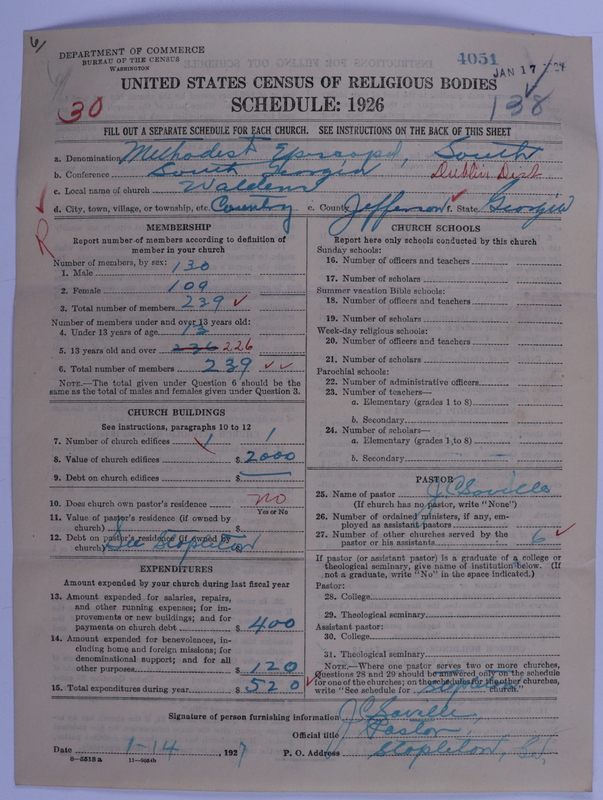 6/
DEPARTMENT OF COMMERCE
BUREAU OF THE CENSUS
WASHINGTON
4051
JAN 17
UNITED STATES CENSUS OF RELIGIOUS BODIES
30
SCHEDULE: 1926
138
FILL OUT A SEPARATE SCHEDULE FOR EACH CHURCH. SEE INSTRUCTIONS ON THE BACK OF THIS SHEET
a. Denomination Methodist Episcopal, South
b. Conference South Georgia Dublin Dist
c. Local name of church
d. City, town, village, or township, etc. Country e. County Jefferson f. State Georgia
R
MEMBERSHIP
Report number of members according to definition of
member in your church
Number of members, by sex:
1. Male 130
2. Female 109
3. Total number of members 239
Number of members under and over 13 years old:
4. Under 13 years of age 13
5. 13 years old and over 236 226
6. Total number of members 239
NOTE.—The total given under Question 6 should be the
same as the total of males and females given under Question 3.
CHURCH BUILDINGS
See instructions, paragraphs 10 to 12
7. Number of church edifices 1 1
8. Value of church edifices $ 2000
9. Debt on church edifices $
10. Does church own pastor's residence no
Yes or No
11. Value of pastor's residence (if owned by
church) $
12. Debt on pastor's residence (if owned by
church) See Stapleton
EXPENDITURES
Amount expended by your church during last fiscal year
13. Amount expended for salaries, repairs,
and other running expenses; for im-
provements or new buildings; and for
payments on church debt $ 400
14. Amount expended for benevolences, in-
cluding home and foreign missions; for
denominational support; and for all
other purposes $ 120
15. Total expenditures during year $ 520
CHURCH SCHOOLS
Report here only schools conducted by this church
Sunday schools:
16. Number of officers and teachers
17. Number of scholars
Summer vacation Bible schools:
18. Number of officers and teachers
19. Number of scholars
Week-day religious schools:
20. Number of officers and teachers
21. Number of scholars
Parochial schools:
22. Number of administrative officers
23. Number of teachers—
a. Elementary (grades 1 to 8)
b. Secondary
24. Number of scholars—
a. Elementary (grades 1 to 8)
b. Secondary
PASTOR
25. Name of pastor J C Saville
(If church has no pastor, write "None")
26. Number of ordained ministers, if any, em-
ployed as assistant pastors
27. Number of other churches served by the
pastor or his assistants 6
If pastor (or assistant pastor) is a graduate of a college or
theological seminary, give name of institution below. (If
not a graduate, write "No" in the space indicated.)
Pastor:
28. College
29. Theological seminary
Assistant pastor:
30. College
31. Theological seminary
NOTE.—Where one pastor serves two or more churches,
Questions 28 and 29 should be answered only on the schedule
for one of the churches; on the schedules for the other churches,
write "See schedule for Stapleton church."
Signature of person furnishing information J C Saville,
Official title Pastor,
Date 1-14, 1927 P. O. Address Stapleton, Ga.
8—5513 a 11—9554b